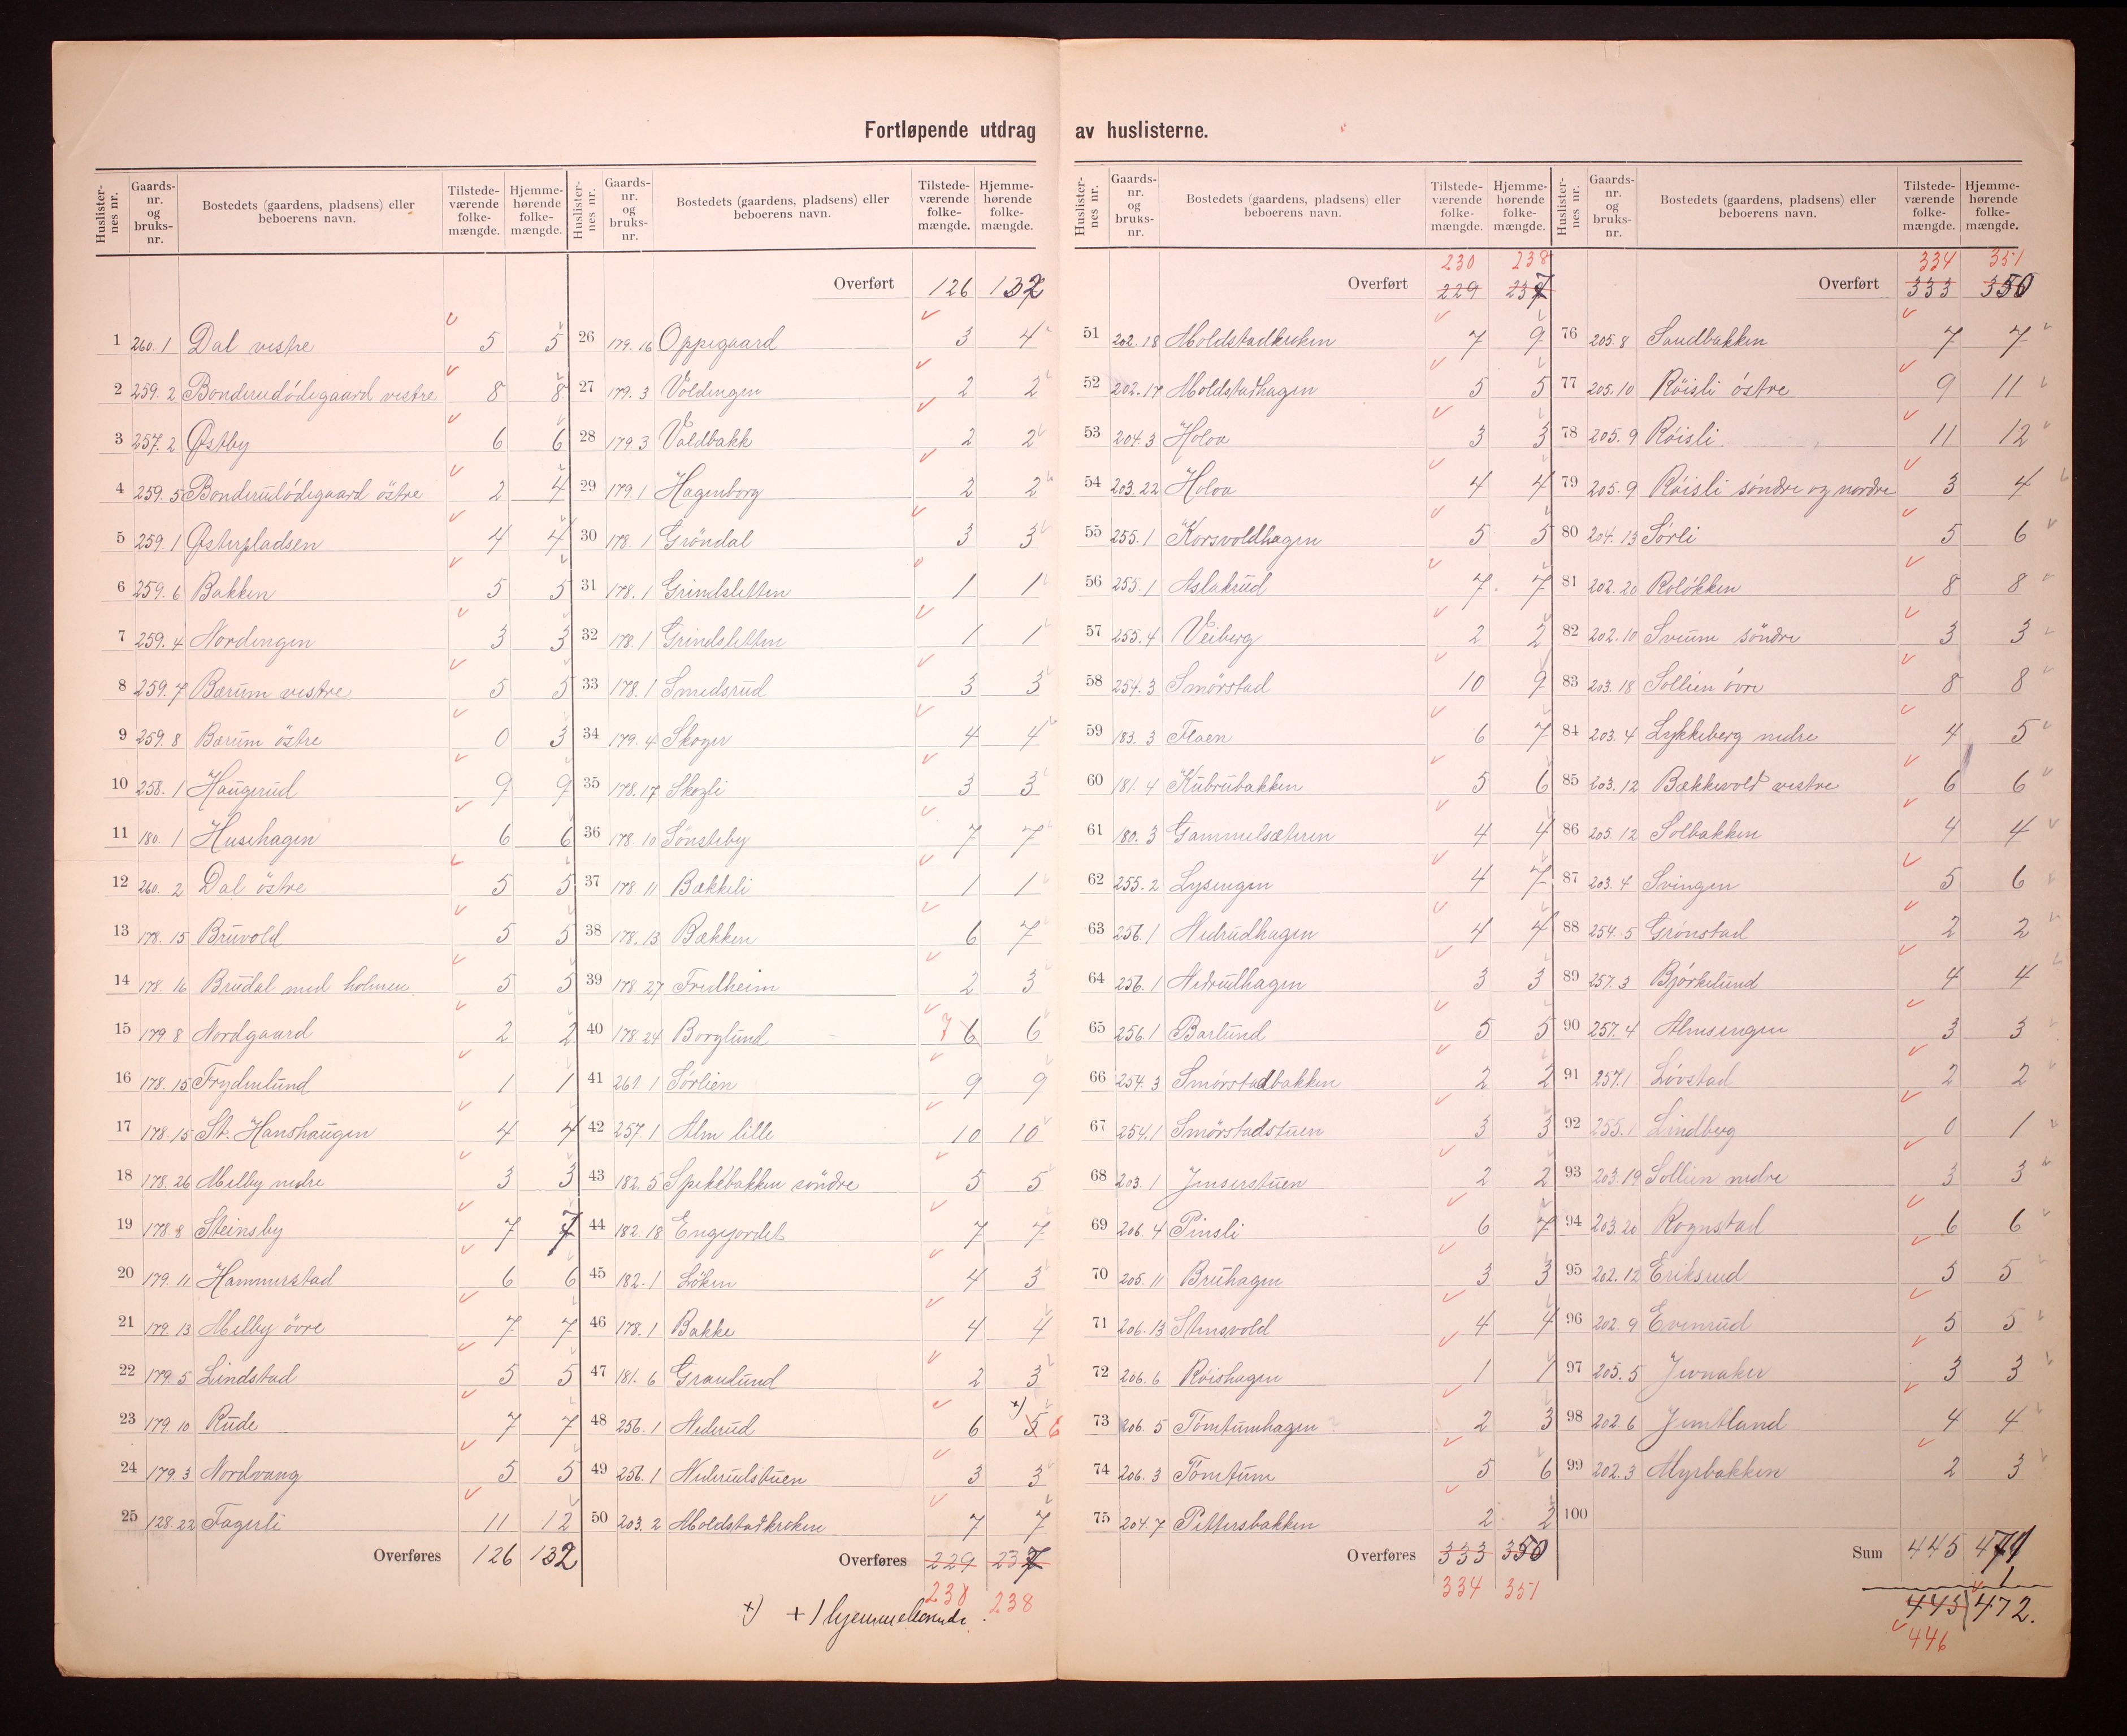 Fortløpende utdrag av huslisterne.
Huslisternes nr. Gaardsnr. og bruksnr. Bostedets (gaardens, pladsens) eller beboerens navn. Tilstedeværende folkemængde. Hjemmehørende folkemængde.
1 260.1 Dal vestre 5 5
2 259.2 Bonderudödegaard vestre 8 8
3 257.2 Østby 6 6
4 259.5 Bonderudödegaard östre 2 4
5 259.1 Østerpladsen 4 4
6 259.6 Bakken 5 5
7 259.4 Nordengen 3 3
8 259.7 Bærum vestre 5 5
9 259.8 Bærum östre 0 3
10 258.1 Haugerud 9 9
11 180.1 Husehagen 6 6
12 260.2 Dal östre 5 5
13 178.15 Bruvold 5 5
14 178.16 Brudal med holmen 5 5
15 179.8 Nordgaard 2 2
16 178.15 Frydenlund 1 1
17 178.15 St. Hanshaugen 4 4
18 178.26 Melby nedre 3 3
19 178.8 Steinsby 7 7
20 179.11 Hammerstad 6 6
21 179.13 Melby övre 7 7
22 179.5 Lindstad 5 5
23 179.10 Rude 7 7
24 179.3 Nordvang 5 5
25 128.22 Fagerli 11 12
Overføres 126 132
Huslisternes nr. Gaardsnr. og bruksnr. Bostedets (gaardens, pladsens) eller beboerens navn. Tilstedeværende folkemængde. Hjemmehørende folkemængde.
Overført 126 132
26 179.16 Oppegaard 3 4
27 179.3 Voldengen 2 2
28 179.3 Voldbakk 2 2
29 179.1 Hagenborg 2 2
30 178.1 Gröndal 3 3
31 178.1 Grindsletten 1 1
32 178.1 Grindsletten 1 1
33 178.1 Smedsrud 3 3
34 179.4 Skoger 4 4
35 178.17 Skogli 3 3
36 178.10 Sönsteby 7 7
37 178.11 Bækkeli 1 1
38 178.13 Bækken 6 7
39 178.27 Fredheim 2 3
40 178.24 Borglund 7 6 6
41 261.1 Sörlien 9 9
42 257.1 Alm lille 10 10
43 182.5 Spekebakken söndre 5 5
44 182.18 Engejordet 7 7
45 182.1 Löken 4 3
46 178.1 Bakke 4 4
47 181.6 Granlund 2 3
48 256.1 Nederud 6 x) 5 6
49 256.1 Nederudstuen 3 3
50 203.2 Moldstadkroken 7 7
Overføres 229 237
230 238
x) + 1 hjemmehörende.
Huslisternes nr. Gaardsnr. og bruksnr. Bostedets (gaardens, pladsens) eller beboerens navn. Tilstedeværende folkemængde. Hjemmehørende folkemængde.
230 238
Overført 229 237
51 202.18 Moldstadkroken 7 9
52 202.17 Moldstadhagen 5 5
53 204.3 Holoa 3 3
54 203.22 Holoa 4 4
55 255.1 Korsvoldhagen 5 5
56 255.1 Aslakrud 7 7
57 255.4 Veiberg 2 2
58 254.3 Smörstad 10 9
59 183.3 Flaen 6 7
60 181.4 Kubrubakken 5 6
61 180.3 Gammelsæteren 4 4
62 255.2 Lysengen 4 7
63 256.1 Nedrudhagen 4 4
64 256.1 Nedrudhagen 3 3
65 256.1 Barlund 5 5
66 254.3 Smörstadbakken 2 2
67 254.1 Smörstadstuen 3 3
68 203.1 Jenserstuen 2 2
69 206.4 Pinsli 6 7
70 205.11 Bruhagen 3 3
71 206.13 Stensvold 4 4
72 206.6 Röishagen 1 1
73 206.5 Tömtumhagen 2 3
74 206.3 Tömtum 5 6
75 204.7 Pettersbakken 2 2
Overføres 333 350
334 351
Huslisternes nr. Gaardsnr. og bruksnr. Bostedets (gaardens, pladsens) eller beboerens navn. Tilstedeværende folkemængde. Hjemmehørende folkemængde.
334 351
Overført 333 350
76 205.8 Sandbakken 7 7
77 205.10 Röisli östre 9 11
78 205.9 Röisli 11 12
79 205.9 Röisli söndre og nordre 3 4
80 204.13 Sörli 5 6
81 202.20 Rolökken 8 8
82 202.10 Sveum söndre 3 3
83 203.18 Sollien övre 8 8
84 203.4 Lykkeberg nedre 4 5
85 203.12 Bækkevold vestre 6 6
86 205.12 Solbakken 4 4
87 203.4 Svingen 5 6
88 254.5 Grönstad 2 2
89 257.3 Björkelund 4 4
90 257.4 Almsengen 3 3
91 257.1 Lövstad 2 2
92 255.1 Lindberg 0 1
93 203.19 Sollien nedre 3 3
94 203.20 Rognstad 6 6
95 202.12 Eriksrud 5 5
96 202.9 Evenrud 5 5
97 205.5 Jevnaker 3 3
98 202.6 Jemtland 4 4
99 202.3 Myrbakken 2 3
100
Sum 445 471
1
445 472.
446